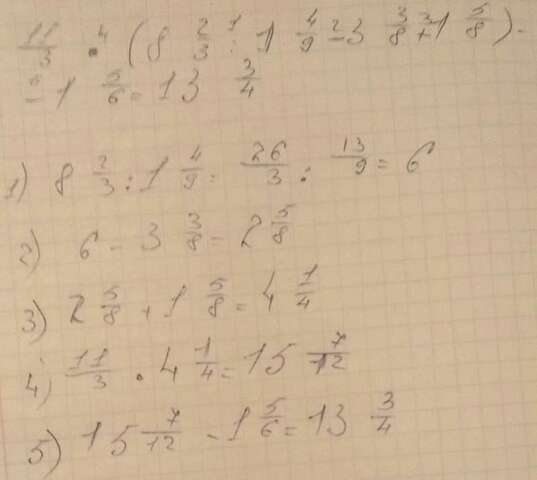 11/3 · (8 2/3 : 1 4/9 - 3 3/8 + 1 5/8) -
- 1 5/6 = 13 3/4
1) 8 2/3 : 1 4/9 = 26/3 : 13/9 = 6
2) 6 - 3 3/8 = 2 5/8
3) 2 5/8 + 1 5/8 = 4 1/4
4) 11/3 · 4 1/4 = 15 7/12
5) 15 7/12 - 1 5/6 = 13 3/4